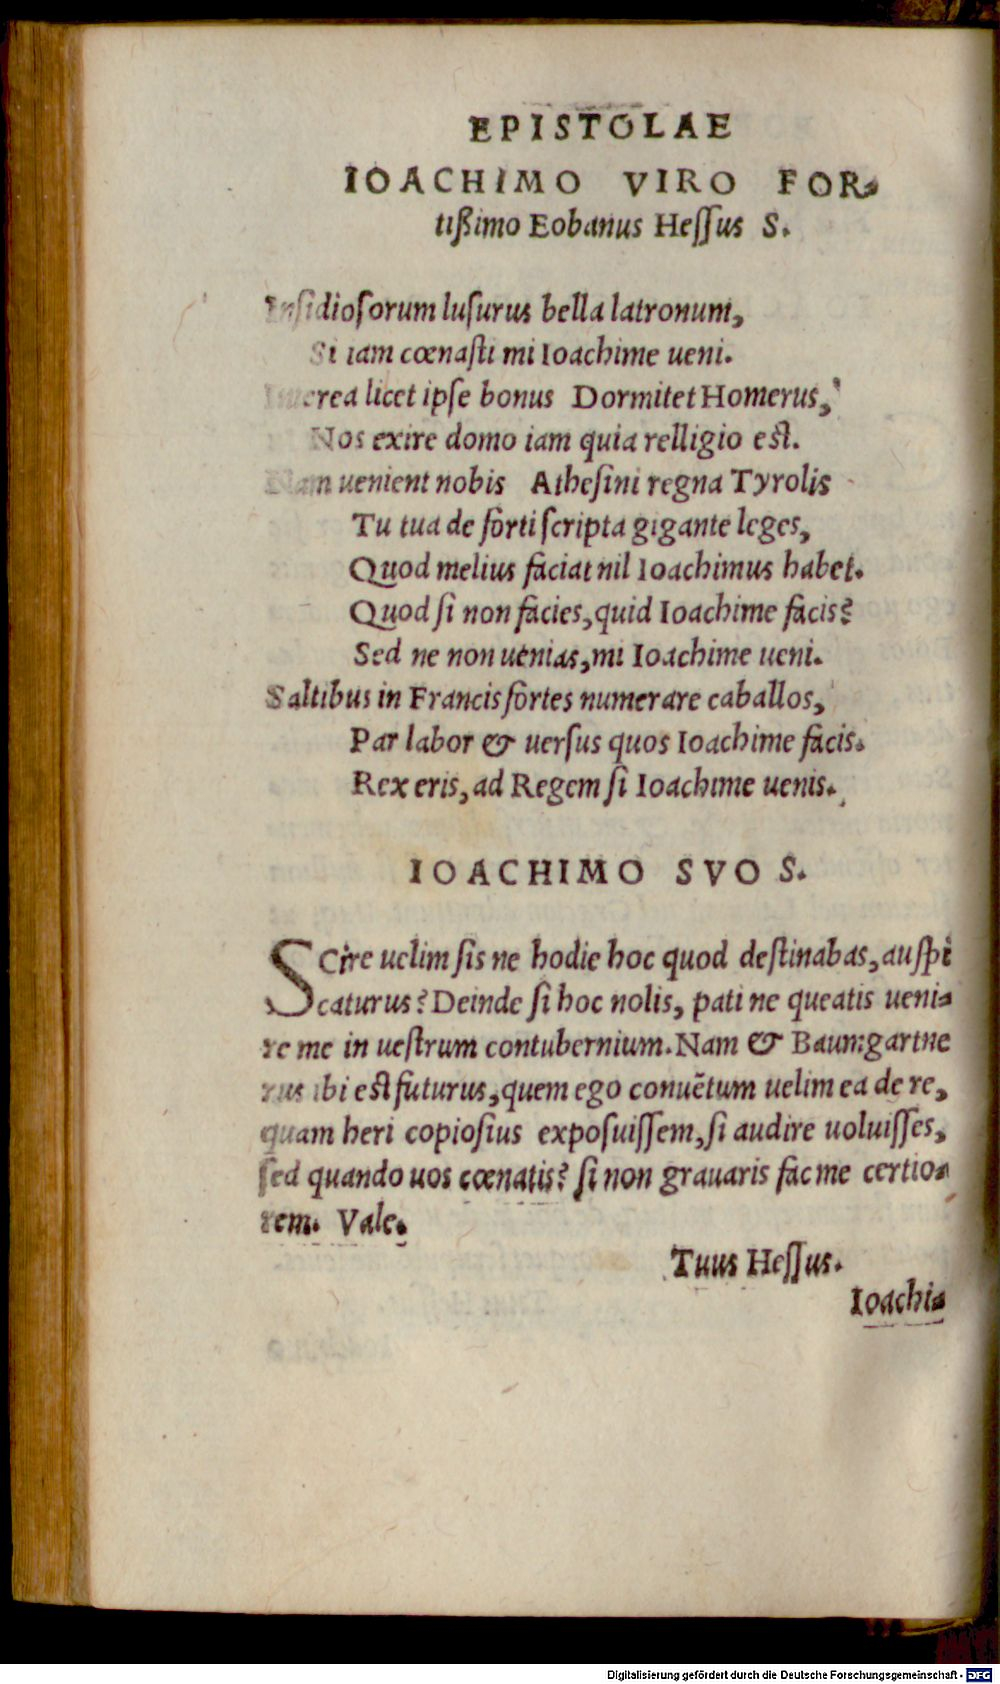 EPISTOLAE
IOACHIMO VIRO FOR-
tißimo Eobanus Heſſus S.
Inſidioſorum luſurus bella latronum,
Si iam cœnaſti mi Ioachime ueni.
Interea licet ipſe bonus Dormitet Homerus,
Nos exire domo iam quia relligio eſt.
Nam uenient nobis Atheſini regna Tyrolis
Tu tua de forti ſcripta gigante leges,
Quod melius faciat nil Ioachimus habet.
Quod ſi non facies, quid Ioachime facis?
Sed ne non uenias, mi Ioachime ueni.
Saltibus in Francis fortes numerare caballos,
Par labor & uerſus quos Ioachime facis.
Rex eris, ad Regem ſi Ioachime uenis.
IOACHIMO SVO S.
SCire uelim ſis ne hodie hoc quod deſtinabas, auſpi
caturus? Deinde ſi hoc nolis, pati ne queatis ueni-
re me in ueſtrum contubernium. Nam & Baumgartne
rus ibi eſt futurus, quem ego conuẽtum uelim ea de re,
quam heri copioſius expoſuiſſem, ſi audire uoluiſſes,
ſed quando uos cœnatis? ſi non grauaris fac me certio-
rem. Vale.
Tuus Heſſus.
Ioachi-
Digitalisierung gefördert durch die Deutsche Forschungsgemeinschaft - DFG